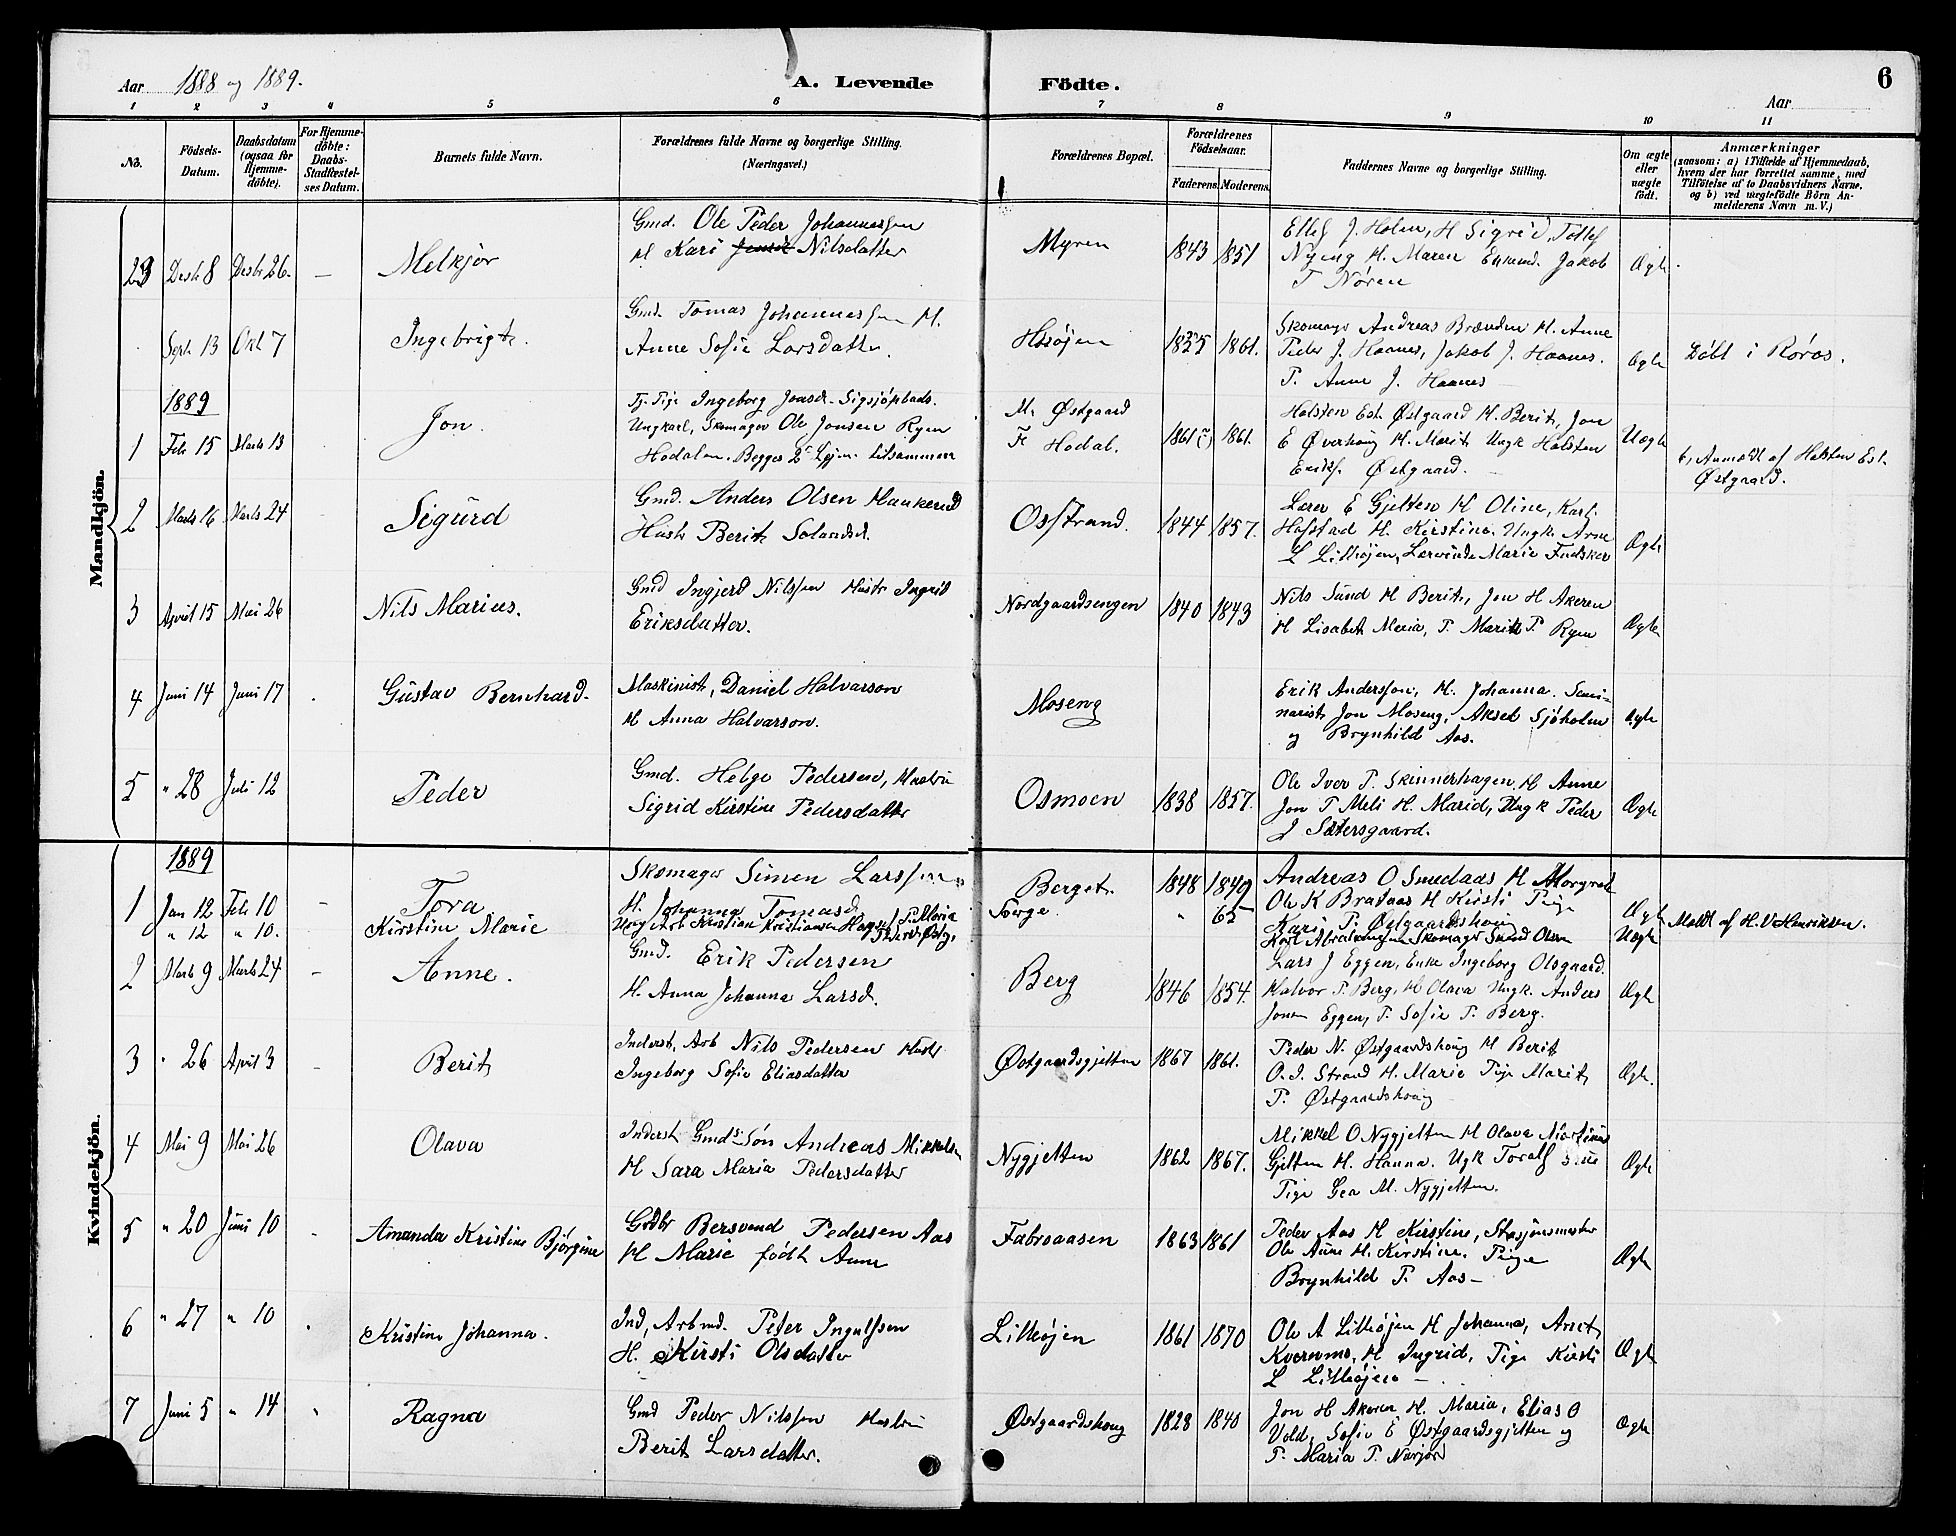 Aar 1888 og 1889.
A. Levende Födte.
Aar
6
1 2 3 4 5 6 7 8 9 10 11
No.
Födsels-Datum.
Daabsdatum (ogsaa for Hjemme-döbte).
For Hjemme-döbte: Daabs-Stadfæstel-ses Datum.
Barnets fulde Navn.
Forældrenes fulde Navne og borgerlige Stilling. (Næringsvei.)
Forældrenes Bopæl.
Forældrenes Födselsaar.
Faderens. Moderens.
Faddernes Navne og borgerlige Stilling.
Om ægte eller uægte födt.
Anmærkninger (saasom: a) i Tilfælde af Hjemmedaab, hvem der har forrettet samme, med Tilföielse af to Daabsvidners Navne, og b) ved uægtefödte Börn An-melderens Navn m. V.)
Mandkjön.
23 Decbr 8 Decbr 26. — Melkjør
Gmd. Ole Peder Johannessen
H Kari Nilsdatter
Myren 1843 1851
Ellef J. Holm, H Sigrid, Tollef
Nyeng H. Maren Enkemd. Jakob
T Nøren
Ægte
Septr 13 Okt 7 Ingebrigt.
Gmd. Tomas Johannessen H.
Anne Sofie Larsdatter.
Hosøien 1835 1861.
Skomager Andreas Brænden H. Anne
Peder J. Haanes, Jakob J. Haanes.
P. Anne J. Haanes —
Ægte Døbt i Røros.
1889
1 Feb 15 Marts 13 Jon.
Tj. Pige Ingeborg Jonsd. Sigsjöplads.
Ungkarl, Skomager Ole Jonsen Ryen
Hodalen. Begges 2det Lejm. tilsammen
M. Østgaard
F. Hodal. 1861 (?) 1861.
Halsten Est. Østgaard H. Berit, Jon
E Øverhaug H. Marit Ungk Halsten
Eriks. Østgaard. —
Uægte
b, Anmeldt af Halsten Est.
Østgaard.
2 Marts 16 Marts 24 Sigurd
Gmd. Anders Olsen Haukerud
Hustr Berit Solandsd.
Osstrand. 1844 1857.
Lærer E Gjelten H Oline, Karl
Hofstad H. Kirstine. Ungk. Arne
L Lilleøjen, Lærerinde Marie Fudsker
Ægte
3 April 15 Mai 26 Nils Marius.
Gmd Ingjerd Nilssen Hustr Ingrid
Eriksdatter.
Nordgaardsengen 1840 1843
Nils Sund H Berit, Jon H Akeren
H Lisabet Maria, P. Marit P. Ryen
Ægte
4 Juni 14 Juni 17 Gustav Bernhard.
Maskinist, Daniel Halvarson
H Anna Halvarson.
Moseng
Erik Andersson, H. Johanna. Semi-
narist Jon Moseng, Aksel Sjöholm
og Brynhild Aas.
Ægte
5 " 28 Juli 12 Peder
Gmd. Helge Pedersen, Hustru
Sigrid Kirstine Pedersdatter
Osmoen 1838 1857.
Ole Iver P. Skinnerhagen H Anne
Jon P Meli H. Marid, Ungk Peder
J Sætersgaard.
Ægte
Kvindekjön.
1889
1 Jan 12 Feb 10 — Tora
Skomager Simen Larssen
H. Johanna Tomasd.
Berget. 1848 1849
Andreas O Smedaas H Morgret
Ole K Brataas H Kirsti Pige
Kari P. Østgaardshaug
Ægte
" 12 " 10. Kirstine Marie
Ung Arb Kristian Kristiansen
Sorge. " 65
Karl Abrahamsen Skomager Olsen
Uægte Meldt af H. V Henriksen.
2 Marts 9 Marts 24 — Anne.
Gmd. Erik Pedersen
H. Anna Johanna Larsd.
Berg 1846 1854.
Lars J Eggen, Enke Ingeborg Olsgaard.
Halvor P. Berg, H Olava Ungk. Anders
Jonsn Eggen, P. Sofie P. Berg.
Ægte
3 " 26 April 3 — Berit
Inderst, Arb Nils Pedersen Hustr
Ingeborg Sofie Eliasdatter
Østgaardsgjelten 1867 1861.
Peder N. Østgaardshaug H Berit
O. J. Strand H. Marie Pige Marit
P. Østgaardshaug
Ægte.
4 Mai 9 Mai 26 Olava
Inderst Gmds Søn Andreas Mikkelsn
H Sara Maria Pedersdatter
Nygjelten 1862 1867.
Mikkel O Nygjelten H Olava
Gjelten H. Hanna. Ugk Toralf
Pige Gea M. Nygjelten.
Ægte
5 " 20 Juni 10 Amanda Kristine Bjørgine
Grdbr Bersvend Pedersen Aas
H Marie født Aune
Fabroaasen 1863 1861
Peder Aas H Kirstine, Stasjonsmester
Ole Aune H. Kirstine. Pige
Brynhild P. Aas —
Ægte
6 " 27 " 10 Kristine Johanna.
Ind, Arbmd. Peter Ingulfsen
H. Kirsti Olsdatter
Lilleøjen 1861 1870
Ole A Lilleøjen H Johanna, Arnt
Kvernmo, H Ingrid, Pige Kirsti
L Lilleøjen —
Ægte
7 Juni 5 " 14 Ragna
Gmd Peder Nilssen Hustru
Berit Larsdatter.
Østgaardshaug 1828 1840
Jon H Akeren H. Maria, Elias O
Vold, Sofie E Østgaardsgjelten og
P. Maria P. Narjor
Ægte